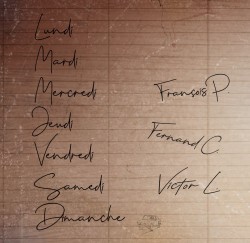 Lundi
Mardi
Mercredi
François P
Jeudi
Fernand C
Vendredi
Samedi
Victor L
Dimanche